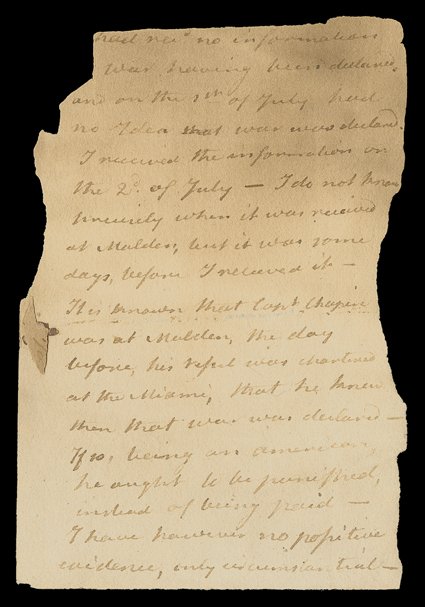 had recd no information
war having been declared,
and on the 1th of July had
no Idea that war was declared.
I received the information on
the 2d. of July — I do not know
precisely when it was received
at Malden, but it was some
days, before I received it —
It is known that Capt. Chapin
was at Malden, the day
before, his vessel was chartered
at the Miami, that he knew
then that war was declared —
If so, being an american,
he ought to be punished,
instead of being paid —
I have however no positive
evidence, only circumstantial —